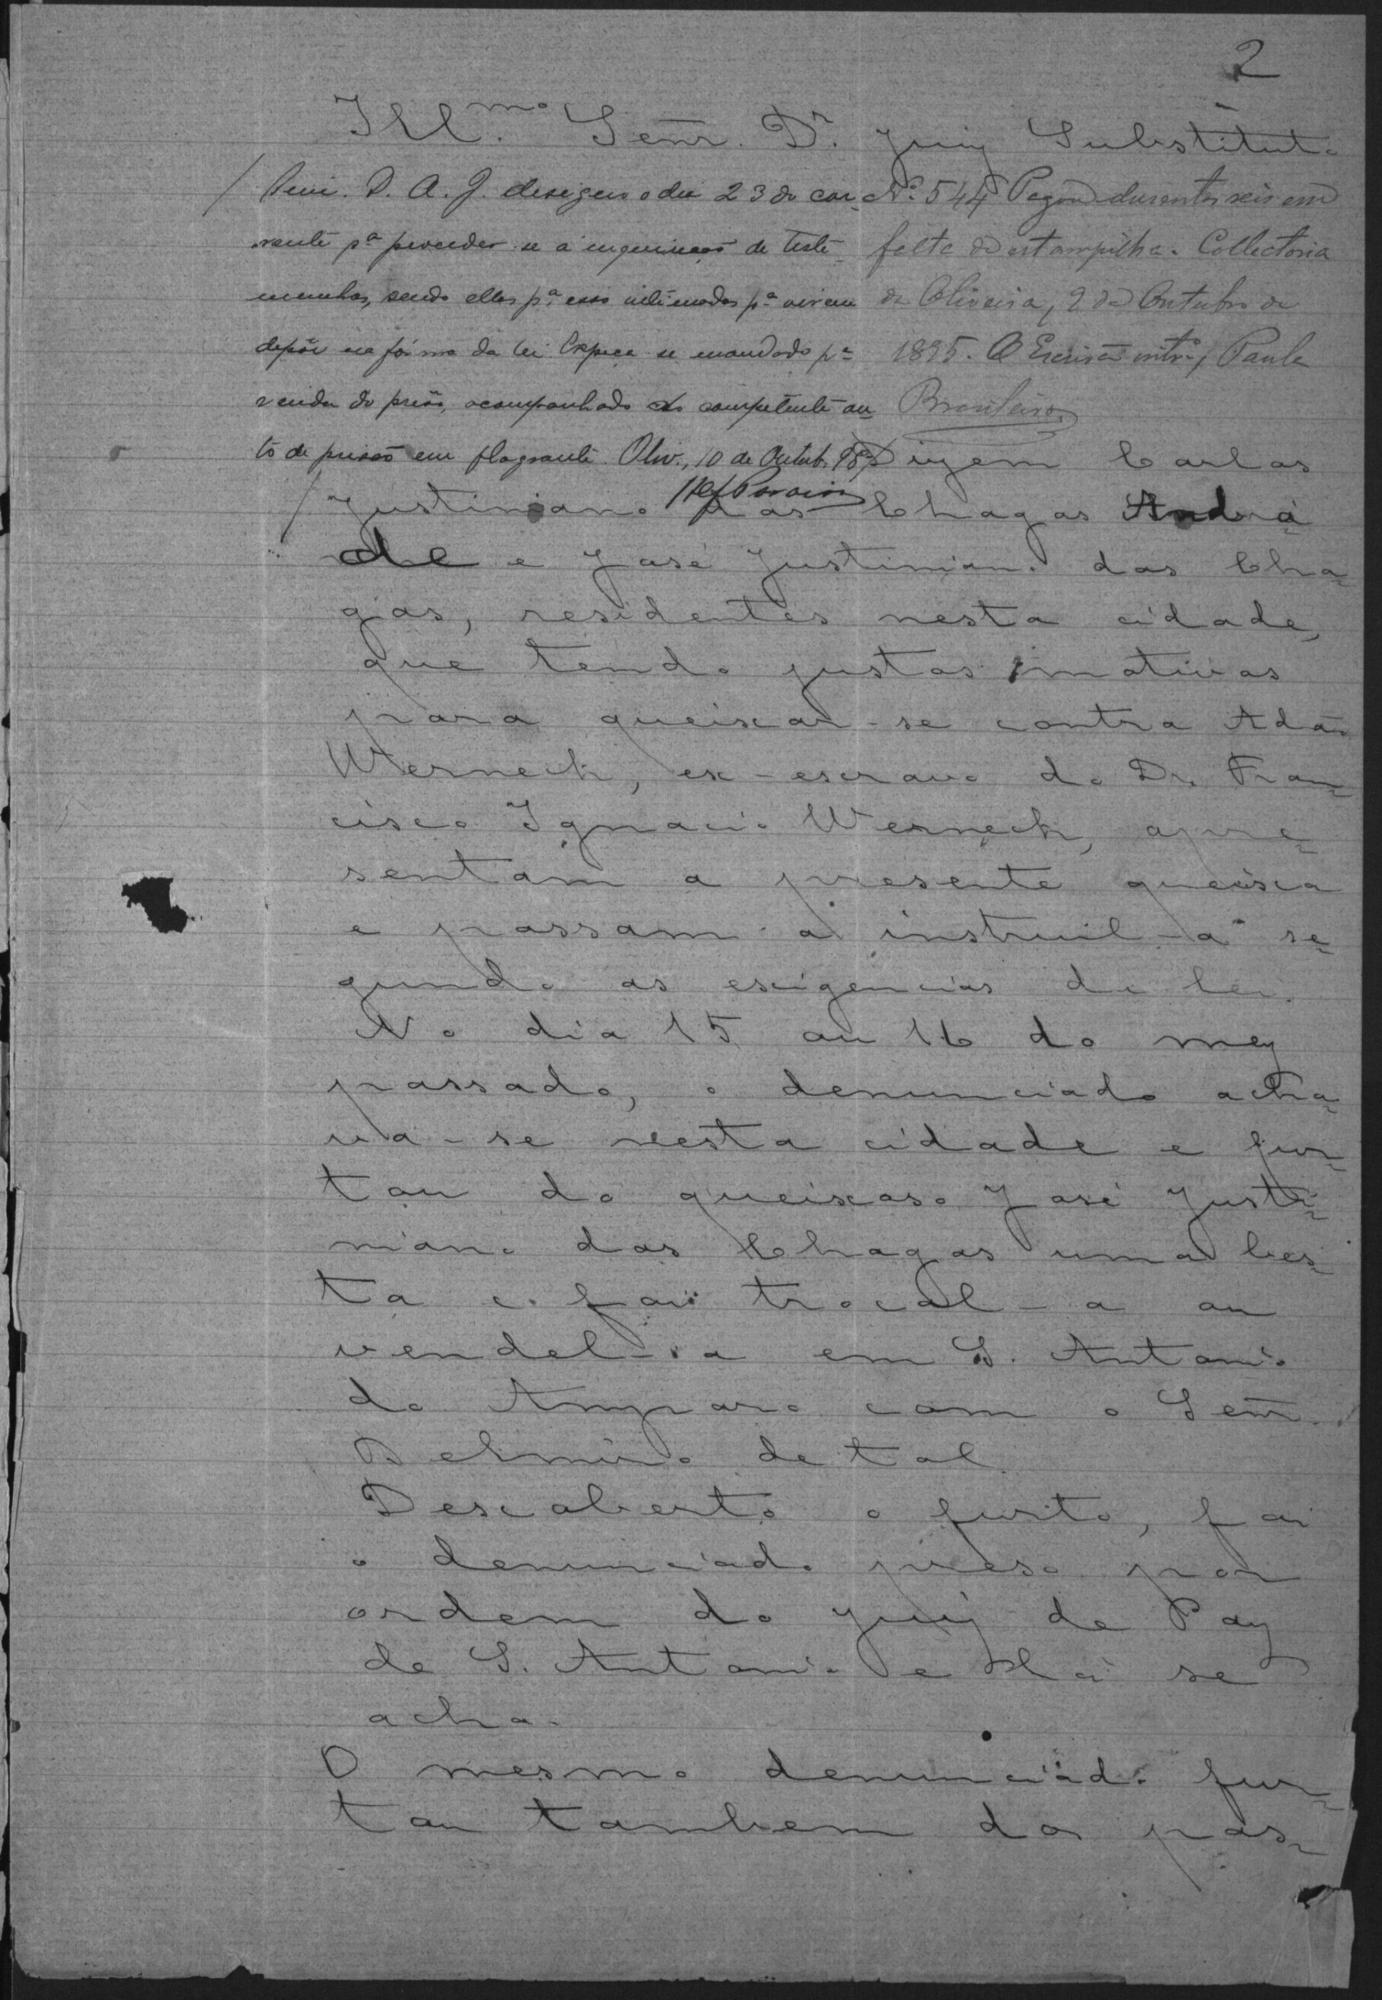 2
Ill.mo Senr. Dr. Juiz Substituto
Sim. D. A. J. designo o dia 23 do cor-
rente pa proceder-se a inquirição de teste-
munhas, sendo ellas pa esse intimadas pa virem
depôr na fórma da lei. Expeça-se mandado pa
vinda do preso, acompanhado do competente au-
to de prisão em flagrante. Oliv., 10 de Outub. 95
No 544 Pagou duzentos reis em
falta de estampilha. Collectoria
de Oliveira, 9 de Outubro de
1895. O Escrivão intro, Paula
Brasileiro
Dizem Carlos
Justiniano das Chagas Andra-
de e José Justiniano das Cha-
gas, residentes nesta cidade,
que tendo justos motivos
para queixar-se contra Adão
Werneck, ex-escravo do Dr. Fran-
cisco Ignacio Werneck, apre-
sentam a presente queixa
e passam a instruil-a se-
gundo as exigencias da lei.
No dia 15 ou 16 do mez
passado, o denunciado acha-
va-se nesta cidade e fur-
tou do queixoso José Justi-
niano das Chagas uma bes-
ta e foi trocal-a ou
vendel-a em S. Antonio
do Amparo com o Senr.
Belmiro de tal.
Descoberto o furto, foi
o denunciado preso por
ordem do Juiz de Paz
de S. Antonio e lá se
acha.
O mesmo denunciado fur-
tou tambem do pas-